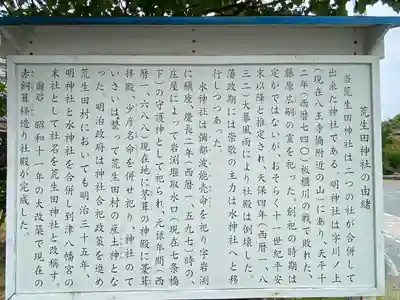 荒生田神社の由緒
当荒生田神社は二つの社が合併して
出来た神社である。明神社は字川ノ上
(現在八王寺橋附近の山)にあり、天平十
二年(西暦七四〇)板櫃川の戦で敗れた、
藤原広嗣の霊を祀った。創祀の時期は
定かではないがおそらく十一世紀平安
末以降と推定され、天保四年(西暦一八
三三)大暴風雨により社殿は倒壊した。
藩政期には崇敬の主力は水神社へと移
行しつつあった。
水神社は彌都波能売命を祀り字岩渕
に鎮座、慶長二年(西暦一、五九七)時の、
庄屋によって岩渕堰取水口(現在七条橋
下)の守護神として祀られ、元禄年間(西
暦一、六八八)現在地に茅葺の神殿に藁葺
拝殿、少彦名命を併せ祀り、神社のて
いさいは整って荒生田村の産土神とな
った。明治政府は神社合祀政策を進め
荒生田村においても明治三十五年、
明神社と水神社を合併し到津八幡宮の
末社として社名を荒生田神社と改稱す。
爾后 昭和十一年の大改築で現在の
赤銅葺様造り社殿が完成した。